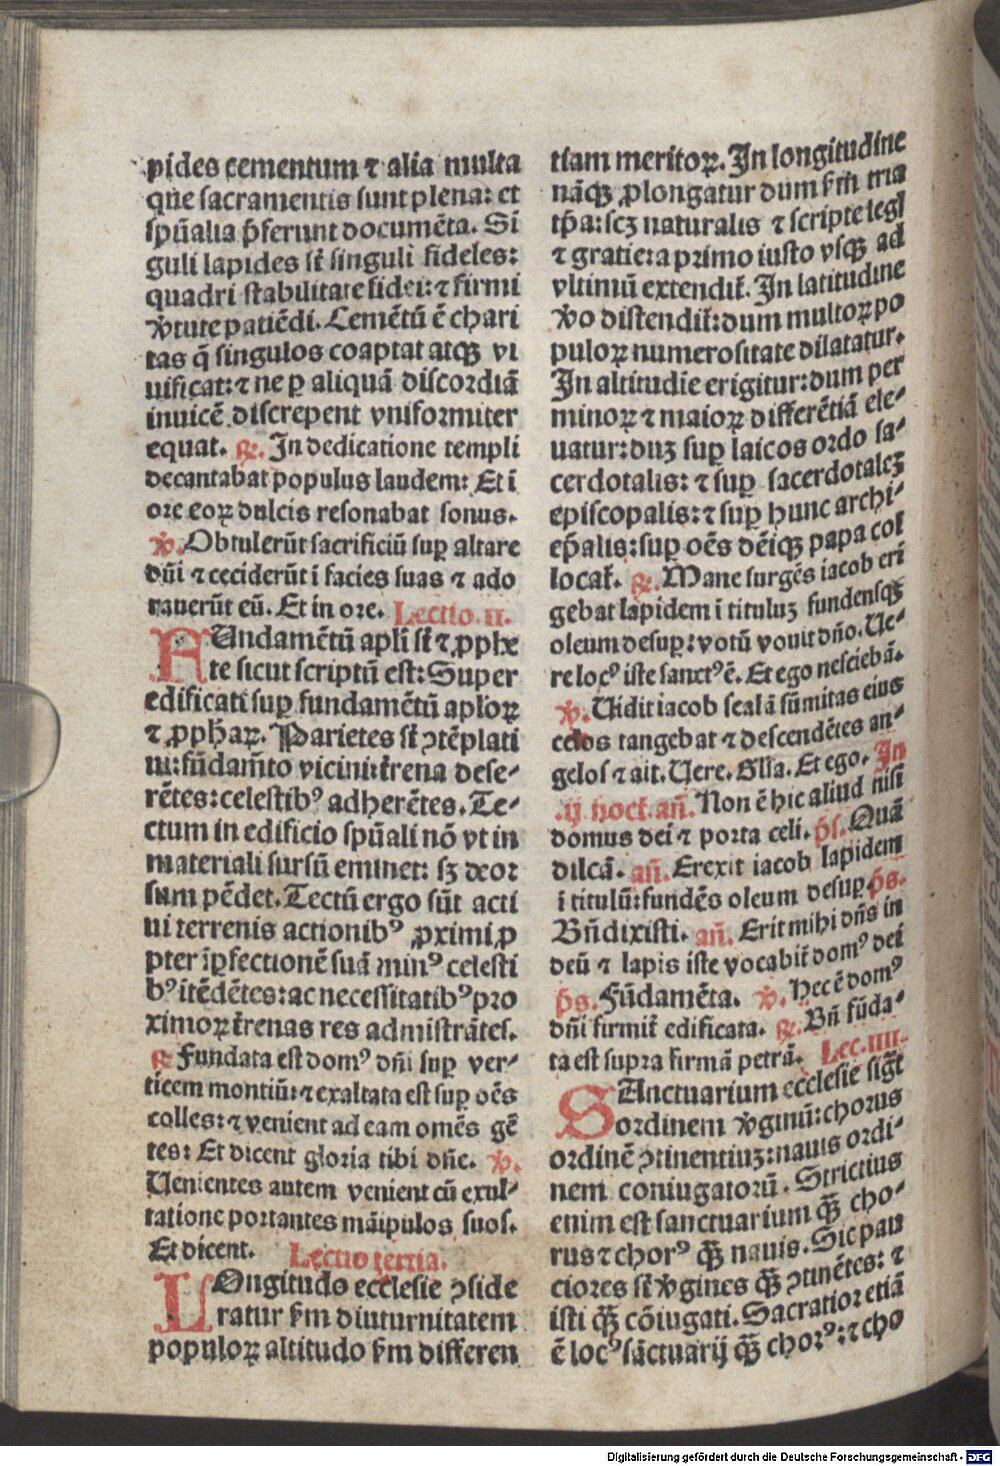 pides cementum ⁊ alia multa
que sacramentis sunt plena: et
spũalia p̃ferunt documẽta. Si
guli lapides sũt singuli fideles:
quadri stabilitate fidei: ⁊ firmi
v̾tute patiẽdi. Cemẽtũ ẽ chari
tas q̃ singulos coaptat atqꝫ vi
uificat: ⁊ ne ꝑ aliquã discordiã
inuicẽ discrepent vniformiter
equat. ℟. In dedicatione templi
decantabat populus laudem: Et ĩ
ore eoꝝ dulcis resonabat sonus.
℣. Obtulerũt sacrificiũ suꝑ altare
dñi ⁊ ceciderũt ĩ facies suas ⁊ ado
rauerũt eũ. Et in ore. Lectio .ii.
FUndamẽtũ apli sũt ⁊ ꝓphe
te sicut scriptũ est: Super
edificati suꝑ fundamẽtũ aploꝝ
⁊ ꝓphaꝝ. Parietes sũt ꝯtẽplati
ui: fũdam̃to vicini: t̾rena dese-
rẽtes: celestibꝰ adherẽtes. Te-
ctum in edificio spũali nõ vt in
materiali sursũ eminet: sꝫ deor
sum pẽdet. Tectũ ergo sũt acti
ui terrenis actionibꝰ ꝓximi ꝓ
pter ĩꝑfectionẽ suã minꝰ celesti
bꝰ itẽdẽtes: ac necessitatibꝰ pro
ximoꝝ t̾renas res admĩstrãtes.
℟ Fundata est domꝰ dñi suꝑ ver-
ticem montiũ: ⁊ exaltata est suꝑ oẽs
colles: ⁊ venient ad eam omẽs gẽ
tes: Et dicent gloria tibi dñe. ℣.
Uenientes autem venient cũ exul-
tatione portantes mãipulos suos.
Et dicent. Lectio tertia.
LOngitudo ecclesie ꝯside
ratur s̾m diuturnitatem
populoꝝ altitudo s̾m differen
tiam meritoꝝ. In longitudine
nãqꝫ ꝓlongatur dum s̾m tria
tp̃a: scꝫ naturalis ⁊ scripte legl
⁊ gratie: a primo iusto vsqꝫ ad
vltimũ extendit̾. In latitudine
v̾o distendit̾: dum multoꝝ po
puloꝝ numerositate dilatatur.
In altitudĩe erigitur: dum per
minoꝝ ⁊ maioꝝ differẽtiã ele-
uatur: duꝫ suꝑ laicos ordo sa-
cerdotalis: ⁊ suꝑ sacerdotaleꝫ
episcopalis: ⁊ suꝑ hunc archi-
ep̃alis: suꝑ oẽs dẽiqꝫ papa col
locat̾. ℟. Mane surgẽs iacob eri
gebat lapidem ĩ tituluꝫ fundensqꝫ
oleum desuꝑ: votũ vouit dño. Ue-
re locꝰ iste sanctꝰ ẽ. Et ego nesciebã.
℣. Uidit iacob scalã sũmitas eius
celos tangebat ⁊ descendẽtes an-
gelos ⁊ ait. Uere. Glĩa. Et ego. In
.ij noct̾. añ. Non ẽ hic aliud nisi
domus dei ⁊ porta celi. p̃s. Quã
dilcã. añ. Erexit iacob lapidem
ĩ titulũ: fundẽs oleum desuꝑ. p̃s.
Bñdixisti. añ. Erit mihi dñs in
deũ ⁊ lapis iste vocabit̾ domꝰ dei
p̃s. Fũdamẽta. ℣. Hec ẽ domꝰ
dñi firmit̾ edificata. ℟. Bñ fũda-
ta est supra firmã petrã. Lec. iiii.
SAnctuarium ecclesie sigt̾
ordinem v̾ginũ: chorus
ordinẽ ꝯtinentiuꝫ: nauis ordi-
nem coniugatorũ. Strictius
enim est sanctuarium qꝫ̃ cho-
rus ⁊ chorꝰ qꝫ̃ nauis. Sic pau
ciores sũt v̾gines qꝫ̃ ꝯtinẽtes: ⁊
isti qꝫ̃ cõiugati. Sacratior etiã
ẽ locꝰ sãctuarij qꝫ̃ chorꝰ: ⁊ cho
Digitalisierung gefördert durch die Deutsche Forschungsgemeinschaft - DFG